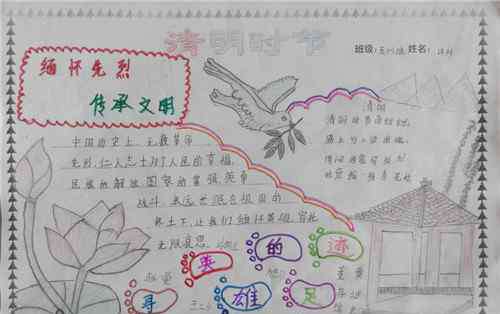 清明时节
班级: 姓名:
缅怀先烈
传承文明
清明
清明时节雨纷纷,
路上行人欲断魂。
中国历史上,无数革命
先烈、仁人志士为了人民的幸福,
民族的解放国家的富强,英勇
战斗,永远长眠在祖国的
热土下,让我们缅怀英雄寄托
无限哀思。
寻英雄的足迹